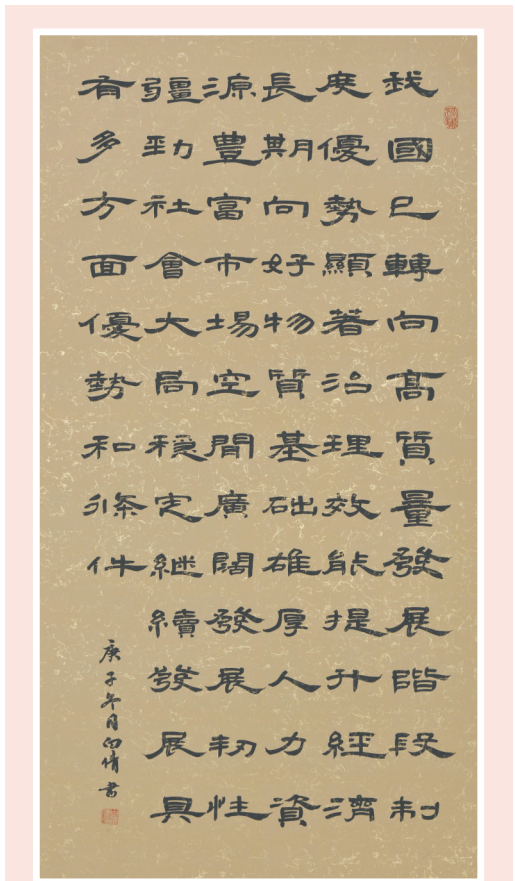 我國已轉向高質量發展階段制
度優勢顯著治理效能提升經濟
長期向好物質基础雄厚人力資
源豊富市場空間廣闊發展韌性
彊勁社會大局穩定継續發展具
有多方面優勢和條件
庚子冬月向倩書